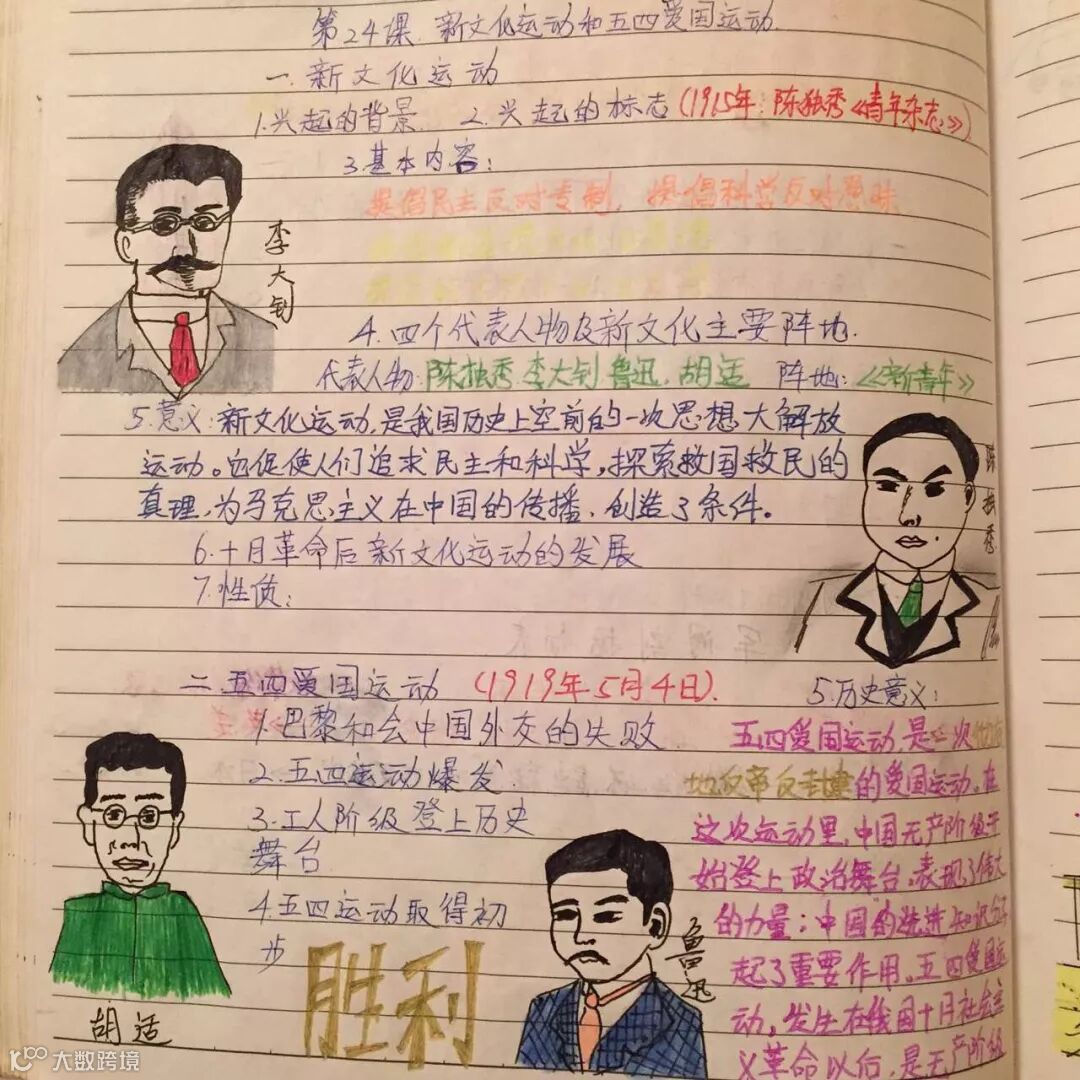 第24课 新文化运动和五四爱国运动
一.新文化运动
1.兴起的背景 2.兴起的标志(1915年:陈独秀《青年杂志》)
3.基本内容:
提倡民主反对专制,提倡科学反对愚昧
李大钊
4.四个代表人物及新文化主要阵地.
代表人物:陈独秀 李大钊 鲁迅.胡适 阵地:《新青年》
5.意义:新文化运动,是我国历史上空前的一次思想大解放
运动。它促使人们追求民主和科学,探索救国救民的
真理,为马克思主义在中国的传播,创造了条件。
陈独秀
6.十月革命后新文化运动的发展
7.性质:
二.五四爱国运动 (1919年5月4日).
1.巴黎和会中国外交的失败
2.五四运动爆发.
3.工人阶级登上历史
舞台
4.五四运动取得初
步
胜利
胡适
鲁迅
5.历史意义:
五四爱国运动,是一次
地反帝反封建的爱国运动。在
这次运动里,中国无产阶级开
始登上政治舞台,表现了伟大
的力量;中国的先进知识分子
起了重要作用。五四爱国运
动,发生在俄国十月社会主
义革命以后,是无产阶级
大数跨境